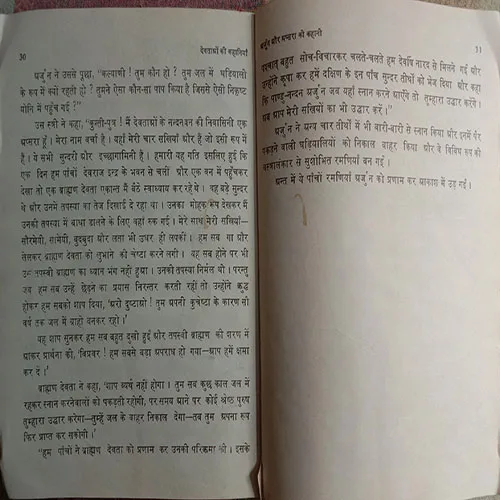 30
देवताओं की कहानियाँ
अर्जुन ने उससे पूछा, "कल्याणी ! तुम कौन हो ? तुम जल में घड़ियालों
के रूप में क्यों रहती हो ? तुमने ऐसा कौन-सा पाप किया है जिससे ऐसी निकृष्ट
योनि में पहुँच गईं ?"
उस स्त्री ने कहा, "कुन्ती-पुत्र ! मैं देवताओं के नन्दनवन की निवासिनी एक
अप्सरा हूँ। मेरा नाम वर्चा है। यहाँ मेरी चार सखियाँ और हैं जो इसी रूप में
हैं। ये सभी सुन्दरी और इच्छागामिनी हैं। हमारी यह गति इसलिए हुई कि
एक दिन हम पाँचों देवराज इन्द्र के भवन से चलीं और एक वन में पहुँचकर
देखा तो एक ब्राह्मण देवता एकान्त में बैठे स्वाध्याय कर रहे थे। वह बड़े सुन्दर
थे और उनमें तपस्या का तेज दिखाई दे रहा था। उनका मोहक रूप देखकर मैं
उनकी तपस्या में बाधा डालने के लिए वहाँ रुक गई। मेरे साथ मेरी सखियाँ—
सौरभेयी, सामेयी, बुदबुदा और लता भी उधर ही लपकीं। हम सब गा और
खेलकर ब्राह्मण देवता को लुभाने की चेष्टा करने लगीं। यह सब होने पर भी
उन तपस्वी ब्राह्मण का ध्यान भंग नहीं हुआ। उनकी तपस्या निर्मल थी। परन्तु
जब हम सब उन्हें छेड़ने का प्रयास निरन्तर करती रहीं तो उन्होंने क्रुद्ध
होकर हम सबको शाप दिया, 'अरी दुष्टाओ ! तुम अपनी कुचेष्टा के कारण सौ
वर्ष तक जल में ग्राहो बनकर रहो।'
यह शाप सुनकर हम सब बहुत दुखी हुईं और तपस्वी ब्राह्मण की शरण में
आकर प्रार्थना की, 'विप्रवर ! हम सबसे बड़ा अपराध हो गया—आप हमें क्षमा
कर दें।'
ब्राह्मण देवता ने कहा, 'शाप व्यर्थ नहीं होगा। तुम सब कुछ काल जल में
रहकर स्नान करनेवालों को पकड़ती रहोगी, पर समय आने पर कोई श्रेष्ठ पुरुष
तुम्हारा उद्धार करेगा—तुम्हें जल के बाहर निकाल देगा—तब तुम अपना रूप
फिर प्राप्त कर सकोगी।'
"हम पाँचों ने ब्राह्मण देवता को प्रणाम कर उनकी परिक्रमा की। इसके
अर्जुन और अप्सरा की कहानी
31
पश्चात् बहुत सोच-विचारकर चलते-चलते हम देवर्षि नारद से मिलने गईं और
उन्होंने कृपा कर हमें दक्षिण के इन पाँच सुन्दर तीर्थों को भेज दिया और कहा
कि पाण्डु-नन्दन अर्जुन जब यहाँ स्नान करने आएँगे तो तुम्हारा उद्धार करेंगे।
अब आप मेरी सखियों का भी उद्धार करें।"
अर्जुन ने अन्य चार तीर्थों में भी बारी-बारी से स्नान किया और इनमें पैर
पकड़ने वाली घड़ियालियों को निकाल बाहर किया और वे विविध रूप की
वस्त्रालंकार से सुशोभित रमणियाँ बन गईं।
अन्त में ये पाँचों रमणियाँ अर्जुन को प्रणाम कर आकाश में उड़ गईं।